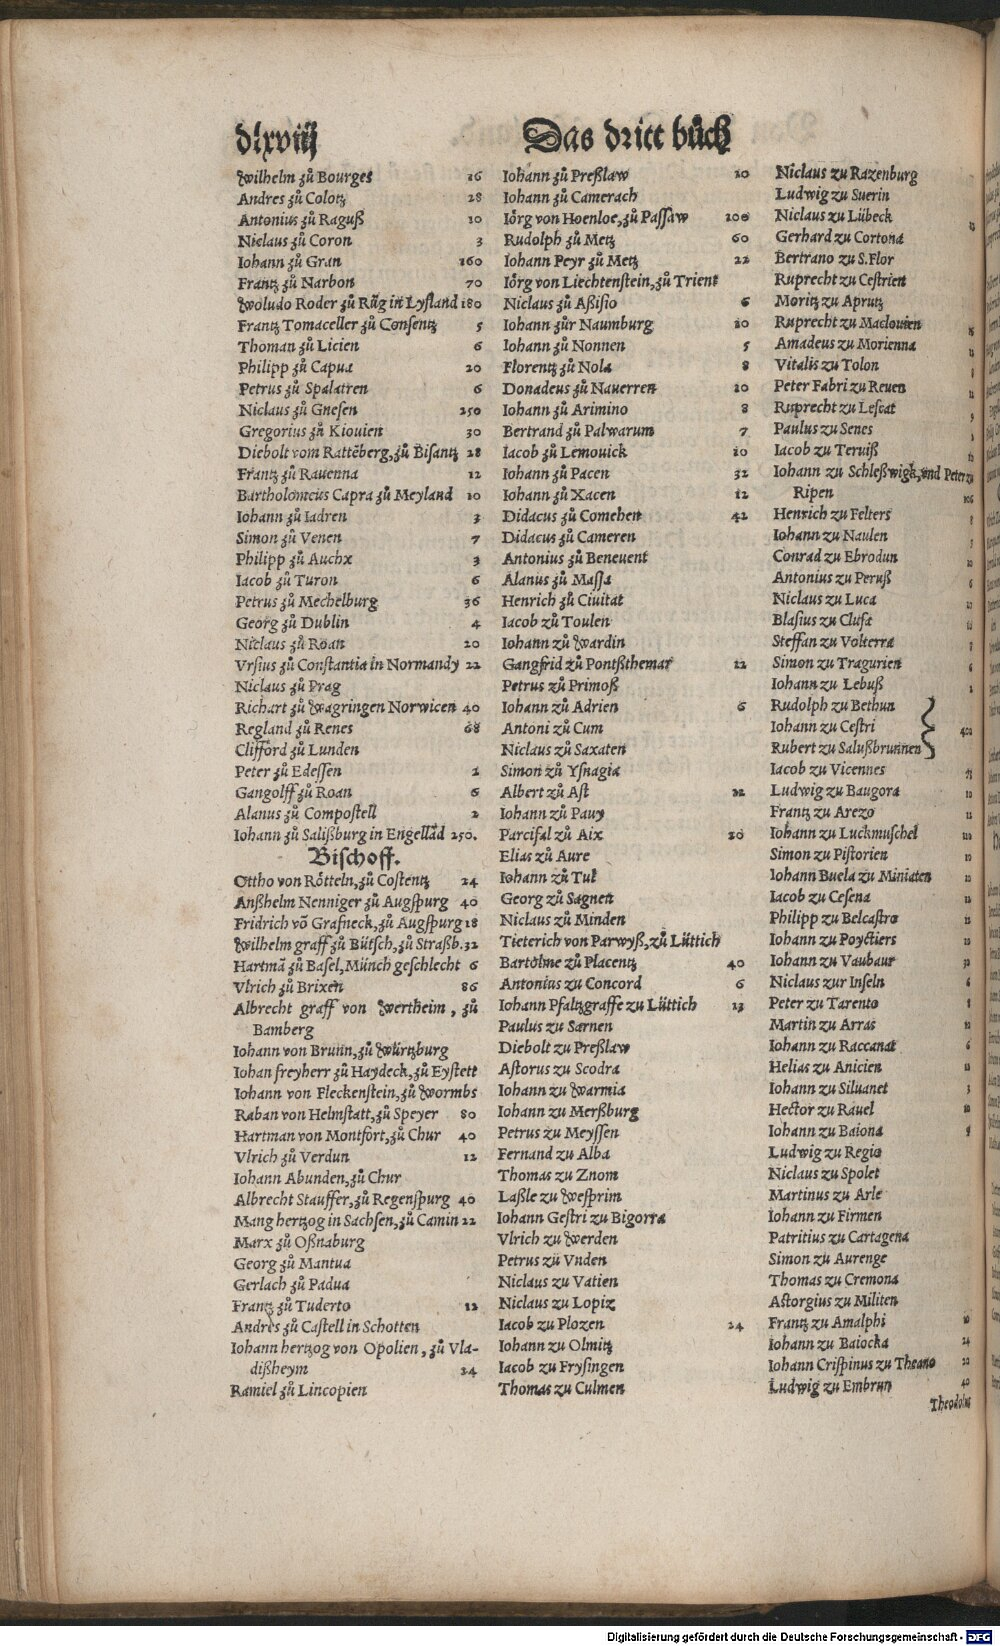 dlxviij
Das dritt bůch
Wilhelm zů Bourges 16
Andres zů Colotz 28
Antonius zů Raguß 10
Niclaus zů Coron 3
Iohann zů Gran 160
Frantz zů Narbon 70
Woludo Roder zů Růg in Lyfland 180
Frantz Tomaceller zů Consentz 5
Thoman zů Licien 6
Philipp zů Capua 20
Petrus zů Spalatren 6
Niclaus zů Gnesen 250
Gregorius zů Kiouien 30
Diebolt vom Rattēberg, zů Bisantz 28
Frantz zů Rauenna 12
Bartholomeus Capra zů Meyland 10
Iohann zů Iadren 3
Simon zů Venen 7
Philipp zů Auchx 3
Iacob zů Turon 6
Petrus zů Mechelburg 36
Georg zů Dublin 4
Niclaus zů Roan 20
Vrsius zů Constantia in Normandy 22
Niclaus zů Prag
Richart zů Wagringen Norwicen 40
Regland zů Renes 68
Clifford zů Lunden
Peter zů Edessen 2
Gangolff zů Roan 6
Alanus zů Compostell 2
Iohann zů Salißburg in Engellād 250.
Bischoff.
Ottho von Rötteln, zů Costentz 24
Anßhelm Nenniger zů Augspurg 40
Fridrich vō Grafneck, zů Augspurg 18
Wilhelm graff zů Bütsch, zů Straßb. 32
Hartmā zů Basel, Münch geschlecht 6
Vlrich zů Brixen 86
Albrecht graff von Wertheim, zů
Bamberg
Iohann von Brunn, zů Würtzburg
Iohan freyherr zů Haydeck, zů Eystett
Iohann von Fleckenstein, zů Wormbs
Raban von Helmstatt, zů Speyer 80
Hartman von Montfort, zů Chur 40
Vlrich zů Verdun 12
Iohann Abunden, zů Chur
Albrecht Stauffer, zů Regenspurg 40
Mang hertzog in Sachsen, zů Camin 22
Marx zů Oßnaburg
Georg zů Mantua
Gerlach zů Padua
Frantz zů Tuderto 12
Andres zů Castell in Schotten
Iohann hertzog von Opolien, zů Vla-
dißheym 24
Ramiel zů Lincopien
Iohann zů Preßlaw 20
Iohann zů Camerach
Iörg von Hoenloe, zů Passaw 200
Rudolph zů Metz 60
Iohann Peyr zů Metz 22
Iörg von Liechtenstein, zů Trient
Niclaus zů Aßisio 6
Iohann zůr Naumburg 20
Iohann zů Nonnen 5
Florentz zů Nola 8
Donadeus zů Nauerren 20
Iohann zů Arimino 8
Bertrand zů Palwarum 7
Iacob zů Lemouick 20
Iohann zů Pacen 32
Iohann zů Xacen 12
Didacus zů Comehen 42
Didacus zů Cameren
Antonius zů Beneuent
Alanus zů Massa
Henrich zů Ciuitat
Iacob zů Toulen
Iohann zů Wardin
Gangfrid zů Pontßthemar 12
Petrus zů Primoß
Iohann zů Adrien 6
Antoni zů Cum
Niclaus zů Saxaten
Simon zů Ysnagia
Albert zů Ast 22
Iohann zů Pauy
Parcifal zů Aix 20
Elias zů Aure
Iohann zů Tul
Georg zů Sagnen
Niclaus zů Minden
Tieterich von Parwyß, zů Lüttich
Bartolme zů Placentz 40
Antonius zů Concord 6
Iohann Pfaltzgraffe zu Lüttich 13
Paulus zu Sarnen
Diebolt zu Preßlaw
Astorus zu Scodra
Iohann zu Warmia
Iohann zu Merßburg
Petrus zu Meyssen
Fernand zu Alba
Thomas zu Znom
Laßle zu Wesprim
Iohann Gestri zu Bigorra
Vlrich zu Werden
Petrus zü Vnden
Niclaus zu Vatien
Niclaus zu Lopiz
Iacob zu Plozen 24
Iohann zu Olmitz
Iacob zu Frysingen
Thomas zu Culmen
Niclaus zu Razenburg
Ludwig zu Suerin
Niclaus zu Lübeck
Gerhard zu Cortona
Bertrano zu S. Flor
Ruprecht zu Cestrien
Moritz zu Aprutz
Ruprecht zu Maclouien
Amadeus zu Morienna
Vitalis zu Tolon
Peter Fabri zu Reuen
Ruprecht zu Lescat
Paulus zu Senes
Iacob zu Teruiß
Iohann zu Schleßwigk, vnd Peter zu
Ripen 106
Henrich zu Felters
Iohann zu Naulen
Conrad zu Ebrodun
Antonius zu Peruß
Niclaus zu Luca
Blasius zu Clusa
Steffan zu Volterra
Simon zu Tragurien
Iohann zu Lebuß
Rudolph zu Bethun
Iohann zu Cestri
Rubert zu Salußbrunnen
Iacob zu Vicennes
Ludwig zu Baugora
Frantz zu Arezo
Iohann zu Luckmuschel
Simon zu Pistorien
Iohann Buela zu Miniaten
Iacob zu Cesena
Philipp zu Belcastro
Iohann zu Poyctiers
Iohann zu Vaubaur
Niclaus zur Inseln
Peter zu Tarento
Martin zu Arras
Iohann zu Raccanat
Helias zu Anicien
Iohann zu Siluanet
Hector zu Rauel
Iohann zu Baiona
Ludwig zu Regio
Niclaus zu Spolet
Martinus zu Arle
Iohann zu Firmen
Patritius zu Cartagena
Simon zu Aurenge
Thomas zu Cremona
Astorgius zu Militen
Frantz zu Amalphi
Iohann zu Baiocka 24
Iohann Crispinus zu Theano
Ludwig zu Embrun 40
Theodolus
Digitalisierung gefördert durch die Deutsche Forschungsgemeinschaft - DFG